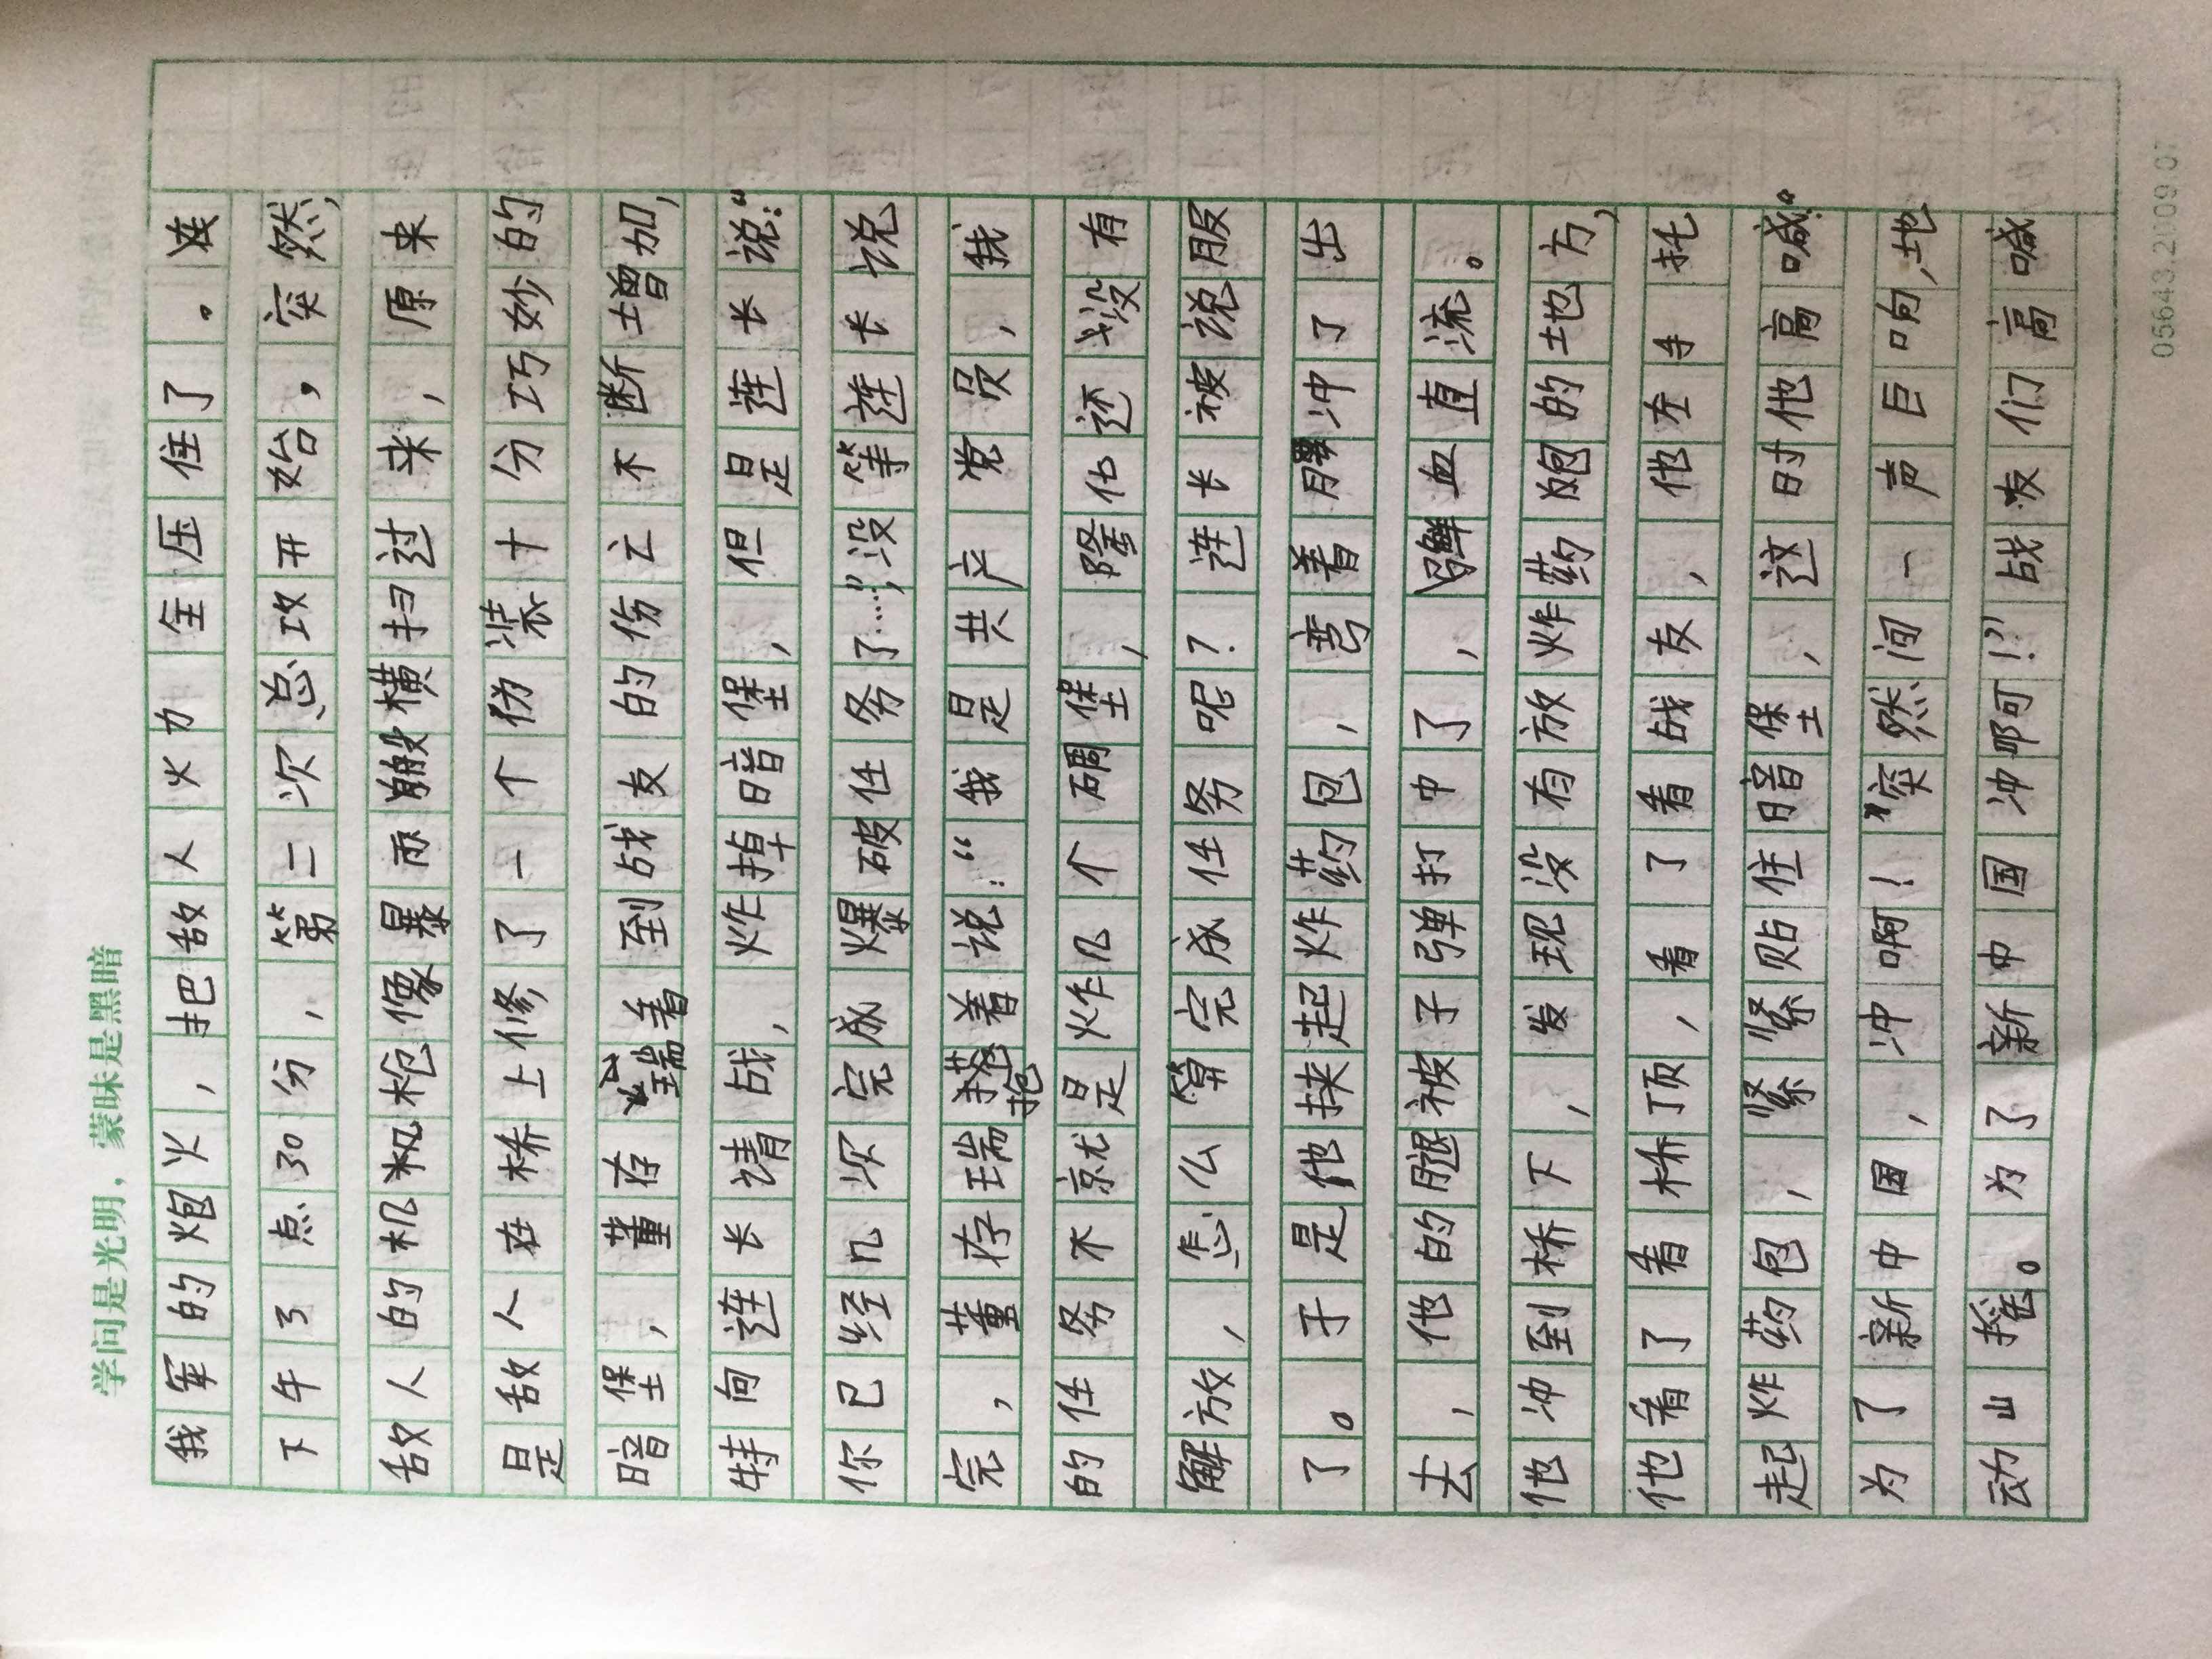 学问是光明，蒙昧是黑暗
我军的炮火，把敌人火力全压住了。这
下午3点30分，第二次总攻开始，突然，
敌人的机枪像暴雨般横扫过来，原来
是敌人在桥上修了一个伪装十分巧妙的
暗堡，董存瑞看到战友的伤亡不断增加，
特向连长请战，炸掉暗堡，但是连长说：“
你已经几次完成爆破任务了……”，没等连长说
完，董存瑞抢着说：“我是共产党员，我
的任务不就是炸几个碉堡，隆化还没有
解放，怎么算完成任务呢？连长被说服
了。于是他挟起炸药包，弯着腰冲了出
去，他的腿被子弹打中了，鲜血直流。
他冲到桥下，发现没有放炸药炮的地方，
他看了看桥顶，看了看战友，他左手托
起炸药包，紧紧贴住暗堡，这时他高喊“
为了新中国，冲啊！”突然间一声巨响，地
动山摇。为了新中国冲啊！？”战友们高喊
05643.2009.07